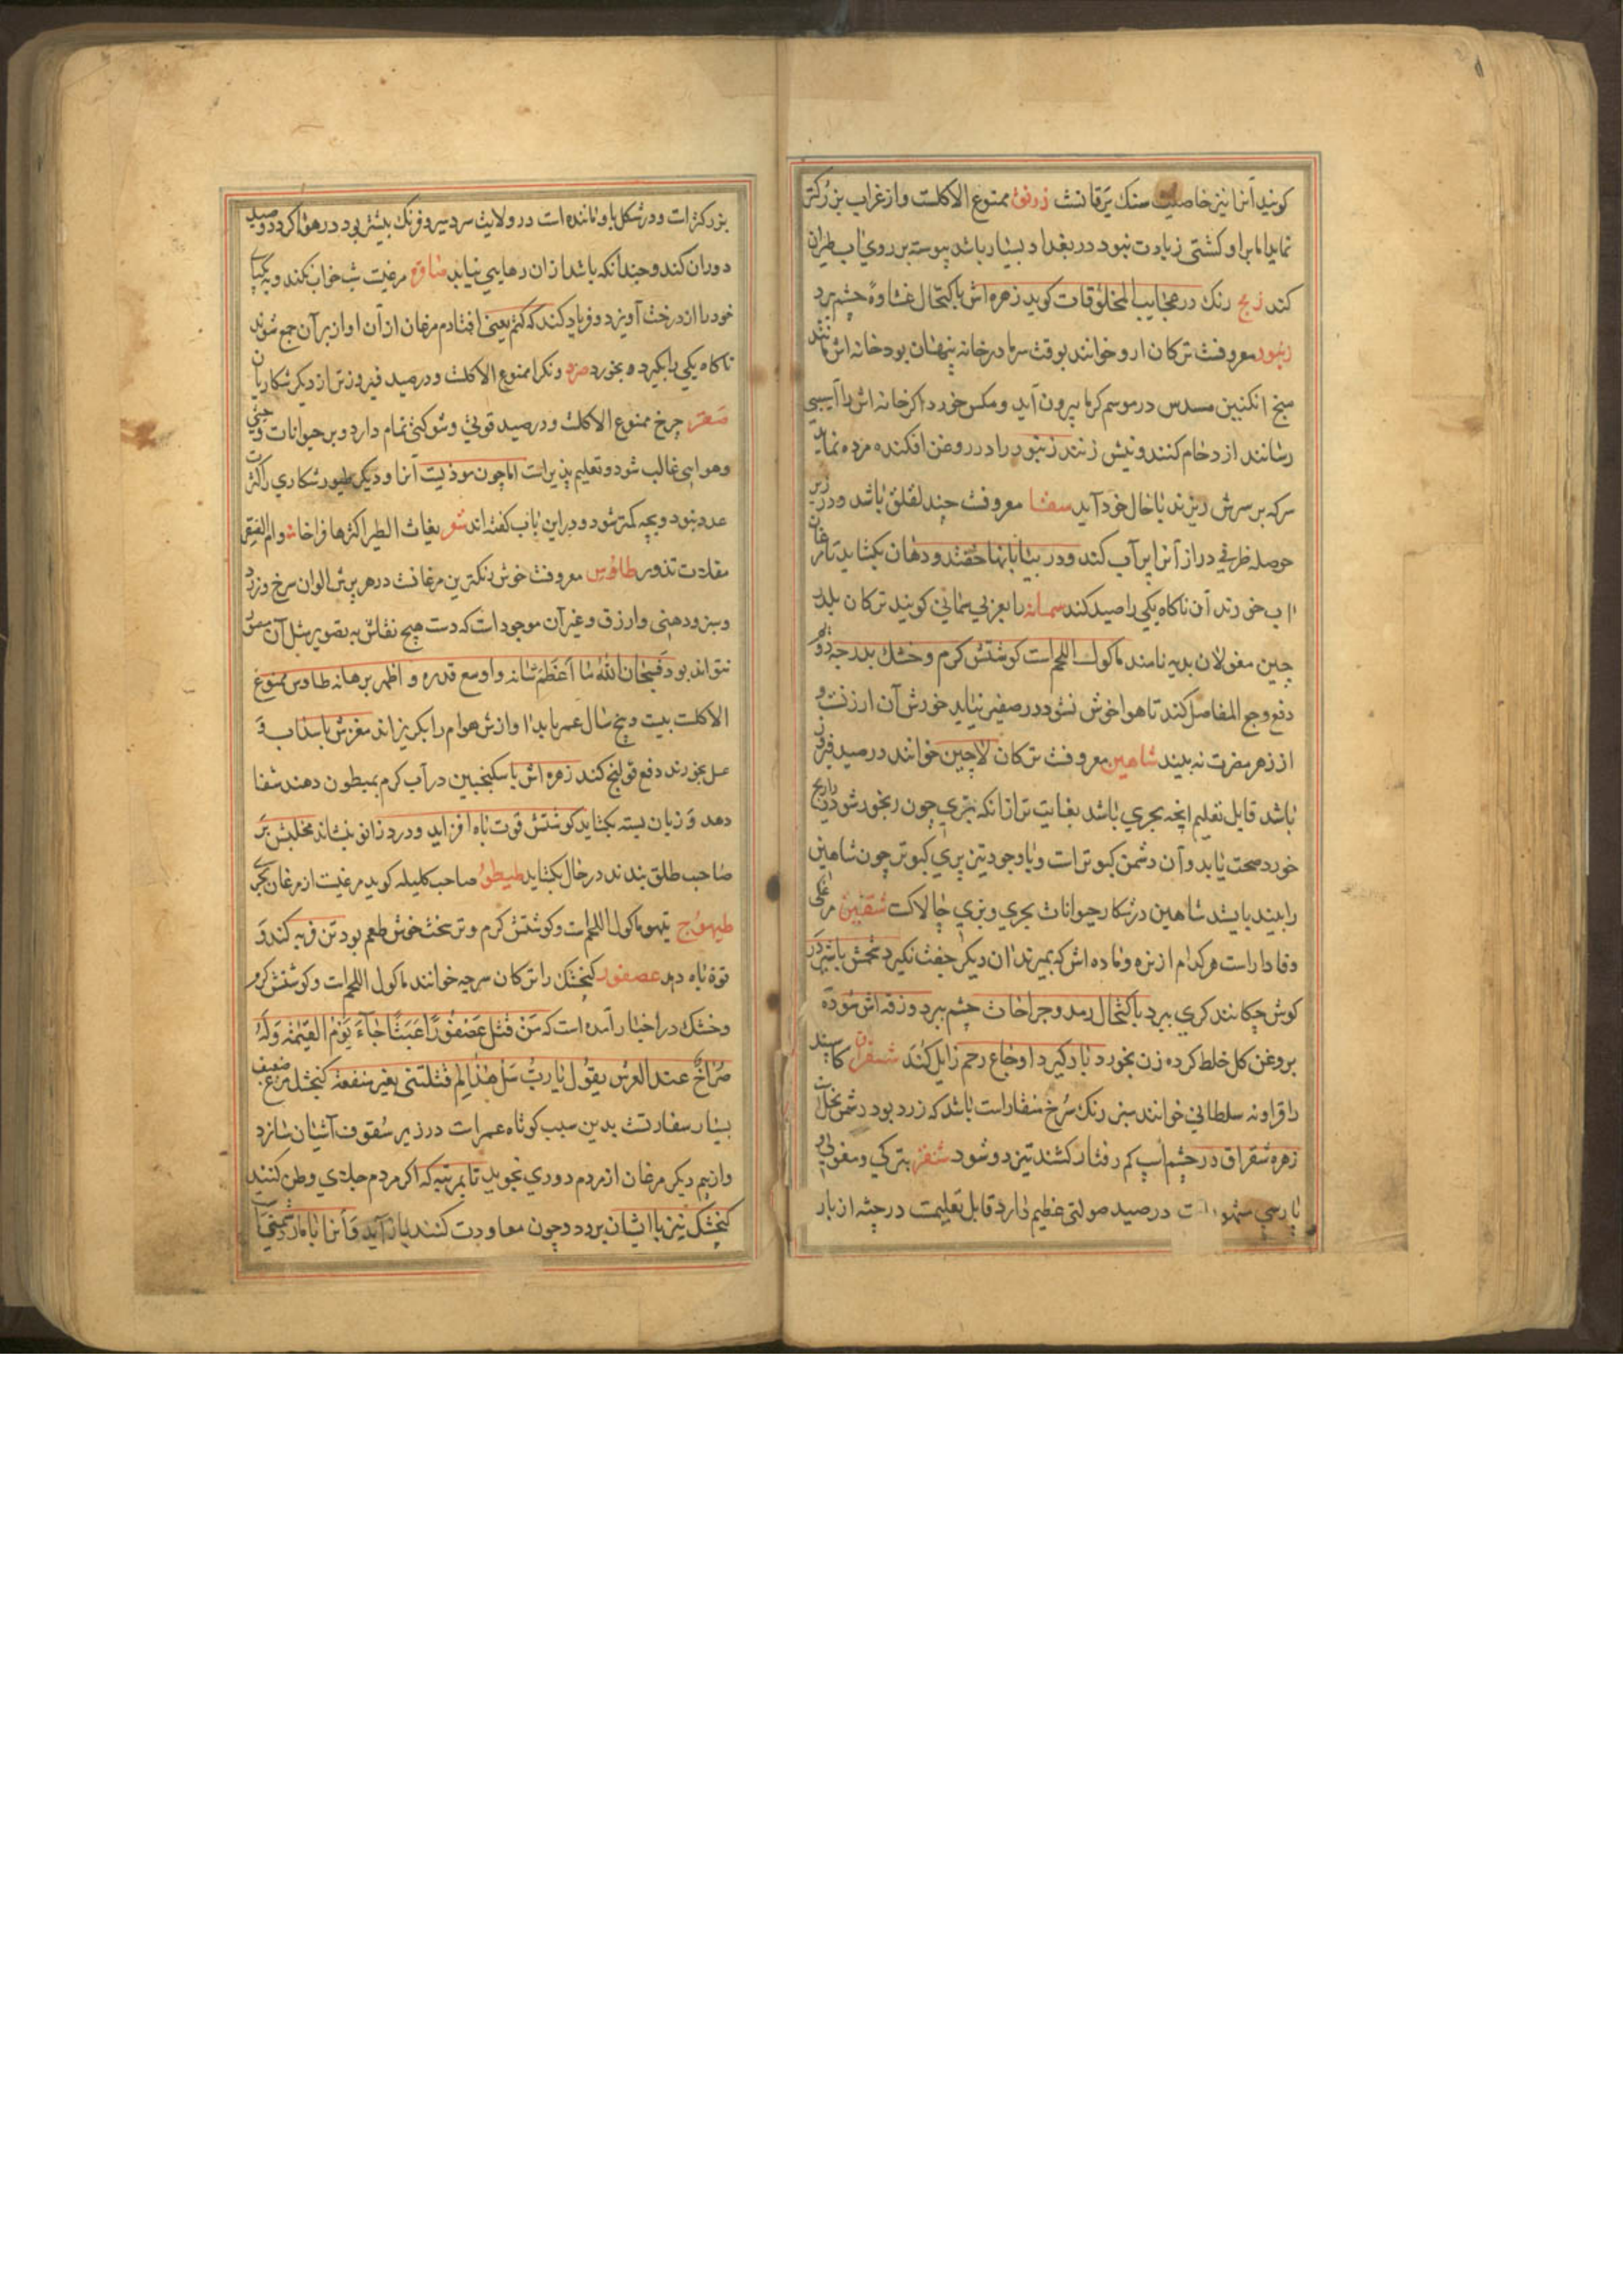 کویند آنرا نیز خاصلیت سنک یرقانست زرنق ممنوع الاکلست و از غراب بزرکتر
نماید اما براو کشتی زیادت نبود در بغداد بسیار باشد پیوسته بر روی اب طیران
کند زمج رنک در عجایب المخلوقات کوید زهره اش باکتحال غشاوة چشم برد
زنبور معروفست ترکان ارو خوانند بوقت سرما در خانه پنهان بود خانه اش مانند
میخ انکبین مسدس در موسم کرما بیرون آید و مکس خورد اکر خانه اش را آسیبی
رسانند ازدحام کنند و نیش زنند زنبور را در روغن افکنده مرده نماید
سرکه بر سرش ریزند باحال خود آید سقا معروفست چند لقلق باشد و در زیر
حوصله ظرفی دراز آنرا پر آب کند و در بیابانها خفتد و دهان بکشاید تا مرغان
اب خورند آن ناکاه یکی را صید کند سمانه را بعربی سمانی کویند ترکان بلدر
چین مغولان بدیه نامند ماکول اللحم است کوشتش کرم و خشک بدرجه دوم
دفع وجع المفاصل کند تا هوا خوش نشود در صفیر نیاید خورش آن ارزنست و
از زهر مضرت نه بیند شاهین معروفست ترکان لاچین خوانند در صید فیروز
باشد قابل تعلیم انچه بحری باشد بغایت تر ازانکه بری چون رنجور شود دارنج
خورد صحت یابد و آن دشمن کبوتر است و باوجود تیز پری کبوتر چون شاهین
را بیند بایستد شاهین در شکار حیوانات بحری و بری چالاکست شفنین مرغکی
وفادار است هرکدام از نره و ماده اش که بمیرند ان دیکر جفت نکیرد تخمش باشیر در
کوش چکانند کری ببرد باکتحال رمد و جراحات چشم ببرد و زقه اش سوده
بروغن کل خلط کرده زن بخورد بار کیرد اوجاع رحم زایل کند شقراق کاسینه
را قراونه سلطانی خوانند سبز رنک سرخ منقار است باشد که زرد بود دشمن نحل است
زهره شقراق در چشم اسپ کم رفتار کشند تیزدو شود شنقر بترکی و مغولی و
پارسی ست در صید صولتی عظیم دارد قابل تعلیمست در جثه از باز
بزرکتر است و در شکل باو ماننده است در ولایت سردسیر و فرنک بیشتر بود در هوا کردد و صید
دوران کند و چندانکه باشد ازان رهایی نیابد صاوة مرغیست شب خواب نکند و به یکپای
خود را از درخت آویزد و فریاد کند که کتم یعنی افتادم مرغان از آن اواز بر آن جمع شوند
ناکاه یکی را بکیرد و بخورد صرد ونکرا ممنوع الاکلست و در صید فیروزتر از دیکر شکاریان
صقر چرخ ممنوع الاکلست و در صید قوتی و شوکتی تمام دارد و بر حیوانات وحشی
و هوایی غالب شود و تعلیم پذیر است اما چون موذیست آنرا و دیکر طیور شکاری را کثرت
عدد نبود و بچه کمتر شود و دراین باب کفته اند شعر بغاث الطیر اکثرها فراخا و ام الصقر
مقلات نزور طاوس معروفست خوش رنکترین مرغانست در هر پرش الوان سرخ و زرد
و سبز و دهنی و ازرق و غیر آن موجود است که دست هیچ نقاش به تصویر مثل آن منقش
نتواند بود فسبحان الله ما اعظم شانه و اوسع قدره و اظهر برهانه طاوس ممنوع
الاکلست بیست و پنج سال عمر یابد اوازش هوام را بکریزاند مغزش با سداب و
عسل بخورند دفع قولنج کند زهره اش با سکنجبین در آب کرم بمبطون دهند شفا
دهد و زبان بسته بکشاید کوشتش قوت باه افزاید و درد زانو بنشاند مخلبش بر
صاحب طلق بندند در حال بکشاید طیطو صاحب کلیله کوید مرغیست از مرغان بحری
طیهوج تیهو ماکول اللحم است و کوشتش کرم و تر سخت خوش طعم بود تن فربه کند و
قوة باه دهد عصفور کنجشک را ترکان سرچه خوانند ماکول اللحم است و کوشتش کرم
و خشک در اخبار آمده است که من قتل عصفورا عبثا جاء یوم القیمة وله
صراخ عند العرش یقول یا رب سل هذا لم قتلتنی بغیر منفعة کنجشک مرغ ضعیف
بسیار سفادست بدین سبب کوتاه عمر است در زیر سقوف آشیان سازد
و از بیم دیکر مرغان از مردم دوری نجوید تا بمرتبه که اکر مردم جلای وطن کنند
کنجشک نیز با ایشان برود و چون معاودت کنند باز آید و آنرا با مار